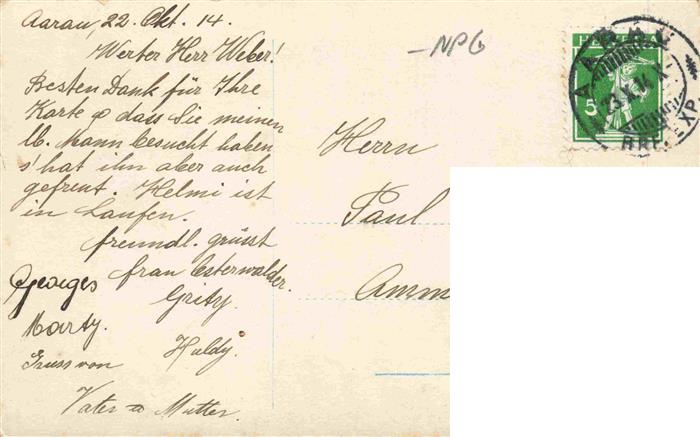 Aarau, 22. Okt. 14.
Werter Herr Weber!
Besten Dank für Ihre
Karte & dass Sie meinen
lb. Mann besucht haben
s'hat ihn aber auch
gefreut. Helmi ist
in Laufen.
freundl. grüsst
frau Osterwalder.
Georges
Grity.
Marty.
Huldy.
Gruss von
Vater & Mutter.
NPG
HELVETIA
5
AARAU
23.X.14
BRF. EXP.
Herrn
Paul
Amm